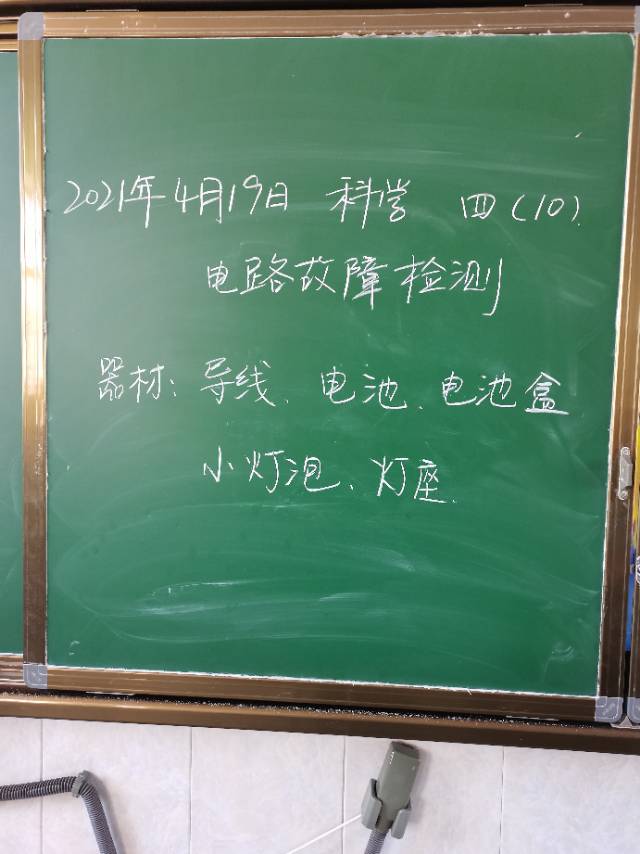 2021年4月19日 科学 四(10).
电路故障检测
器材:导线、电池、电池盒
小灯泡、灯座.